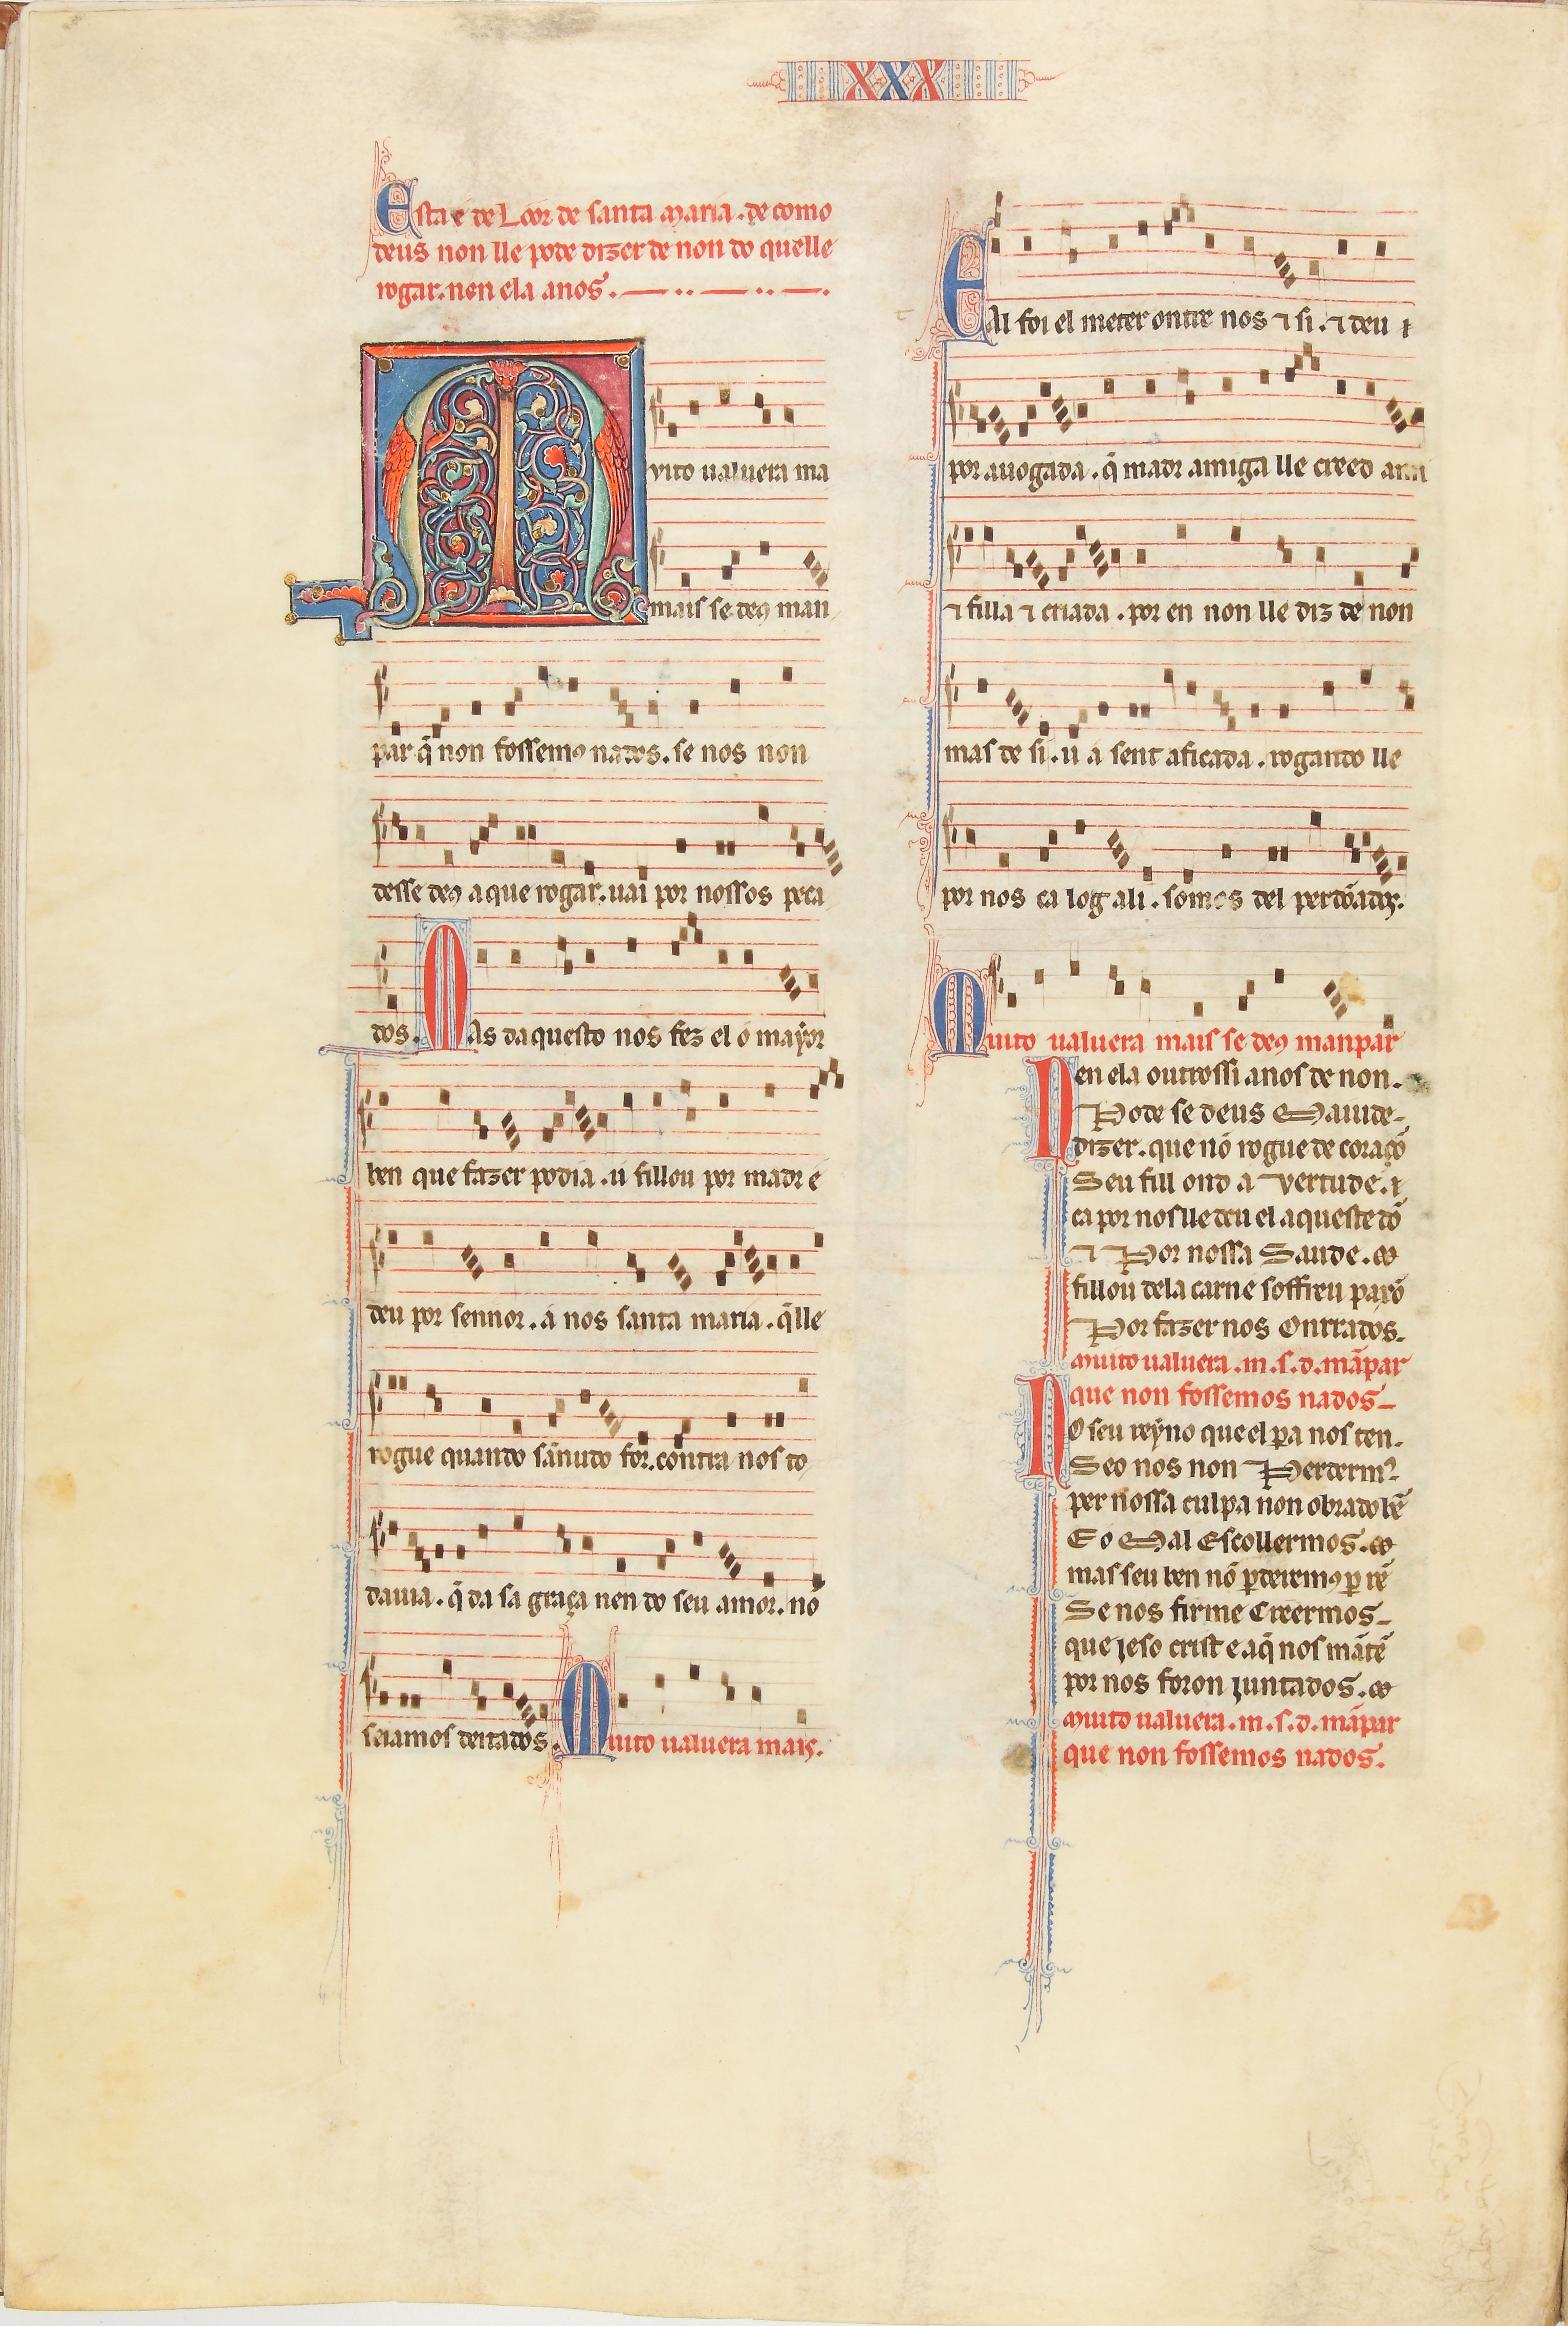 XXX
Esta é de Loor de santa maria . de como
deus non lle pode dizer de non do quelle
rogar . nen ela a nos .
Muito ualuera ma
mais se deꝰ man
par q̃ non fossemꝰ nados . se nos non
desse deꝰ a que rogar . uai por nossos peca
dos . Mas daquesto nos fez el o maẏor
ben que fazer podia . u fillou por madr e
deu por sennor . a nos santa maria . q̃ lle
rogue quando sãnudo for . contra nos to
dauia . q̃ da sa graça nen do seu amor . nõ
seiamos deitados . Muito ualuera mais .
Cal foi el meter ontre nos ⁊ si . ⁊ deu
por auogada . q̃ madr amiga lle creed
⁊ filla ⁊ criada . por en non lle diz de non
mas de si . u a sent aficada . rogando lle
por nos ca log ali . somos del perdõados .
Muito ualuera mais se deꝰ manpar
Nen ela outrossi a nos de non .
Pode se deus Maiude .
dizer . que nõ rogue de coraçõ
Seu fill ond a Vertude .
ca por nos lle deu el aqueste dõ
⁊ Por nossa Saude .
fillou dela carne soffreu paxõ
Por fazer nos Onrrados .
Muito ualuera . m . s . d . mãpar
que non fossemos nados
No seu reẏno que el pa nos ten .
Se o nos non Perdermꝰ
per nossa culpa non obrado bẽ
E o Mal Escollermos .
mas seu ben nõ pderemꝰ p rẽ
Se nos firme Creermos
que ieso crist e a q̃ nos mãtẽ
por nos foron iuntados .
Muito ualuera . m . s . d . mãpar
que non fossemos nados .